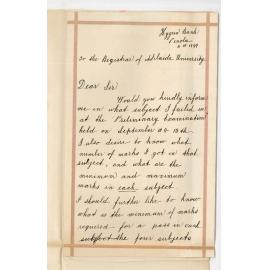 Bank
Penola
To the Registrar of Adelaide University.
Dear Sir
Would you kindly inform
me in what subject I failed in
at the Preliminary Examination
held on September
I also desire to know what
number of marks I got in that
subject, and what are the
minimum and maximum
marks in each subject.
I should further like to know
what is the minimum of marks
required for a pass in each
subject the four subjects